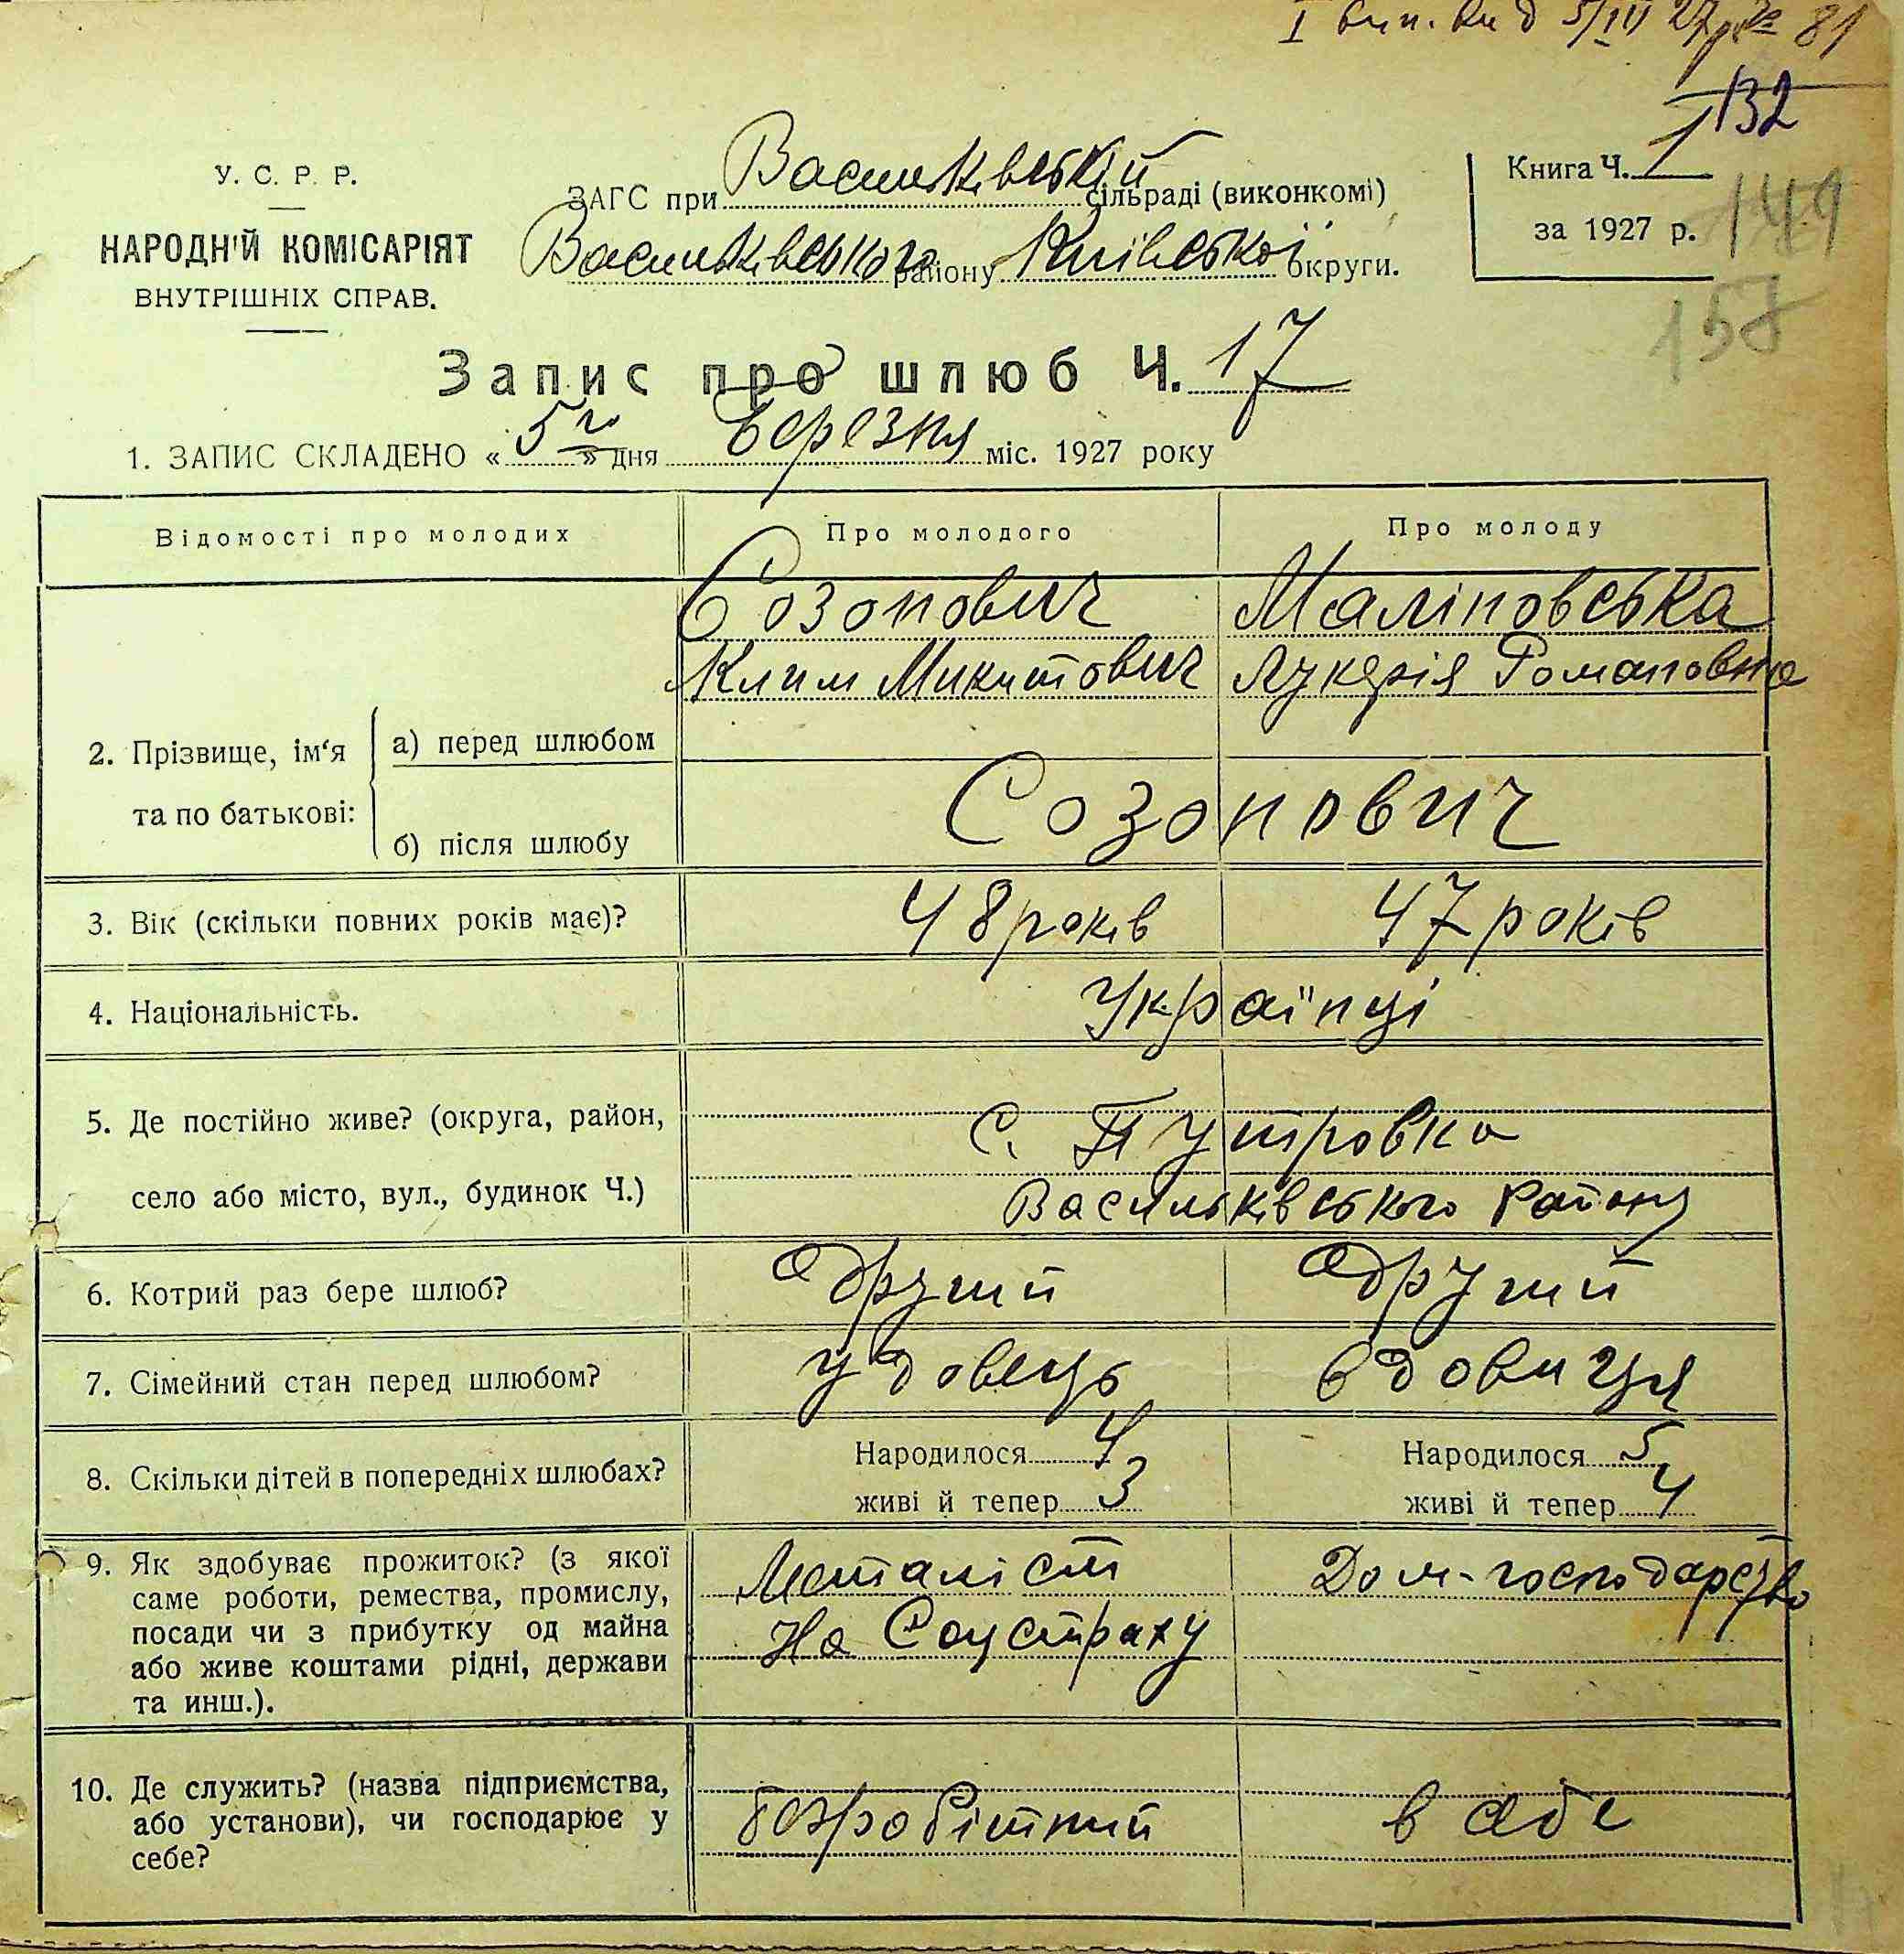 I вип. вид 5/III 27р № 81
132
У. С. Р. Р.
НАРОДНІЙ КОМІСАРІЯТ
ВНУТРІШНІХ СПРАВ.
ЗАГС при Васильківській сільраді (виконкомі)
Васильківського району Київської округи.
Книга Ч. 1
за 1927 р.
141
157
Запис про шлюб Ч. 17
1. ЗАПИС СКЛАДЕНО « 5го » дня Березня міс. 1927 року
Відомості про молодих Про молодого Про молоду
Созонович Маліновська
Клим Микитович Лукерія Романовна
2. Прізвище, ім‘я та по батькові:
а) перед шлюбом
б) після шлюбу Созонович
3. Вік (скільки повних років має)? 48 років 47 років
4. Національність. Українці
5. Де постійно живе? (округа, район, с. Путровка
село або місто, вул., будинок Ч.) Васильківського району
6. Котрий раз бере шлюб? другий другий
7. Сімейний стан перед шлюбом? удовець вдовиця
8. Скільки дітей в попередніх шлюбах? Народилося 4 Народилося 5
живі й тепер 3 живі й тепер 4
9. Як здобуває прожиток? (з якої Металіст Дом-господарство
саме роботи, ремества, промислу,
посади чи з прибутку од майна На Соцстраху
або живе коштами рідні, держави
та инш.).
10. Де служить? (назва підприємства,
або установи), чи господарює у безробітний в себе
себе?